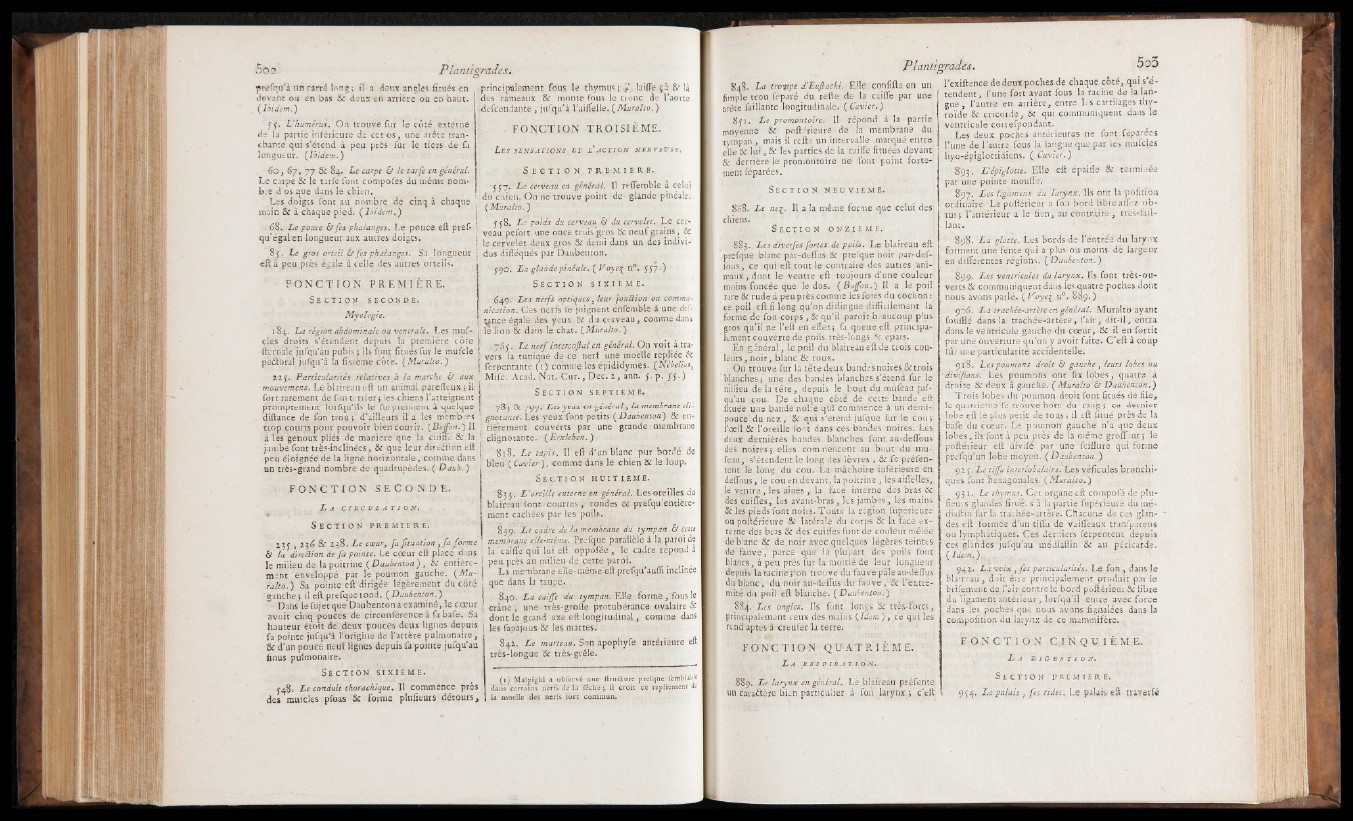 502 Plantigrades.
presqu'à un carré long ; il a deux angles situés en
devant ou en bas & deux en arrière ou en haut.
(Ibidem.)
55. L'humérus. On trouve sur le côté externe
de la partie inférieure de cet os, une arête tran-
chante qui s'étend à peu près sur le tiers de sa
longueur. (Ibidem.)
60, 67, 77 & 84. Le carpe & le tarse en général.
Le carpe & le tarse sont composés du même nom-
bre d'os que dans le chien.
Les doigts sont au nombre de cinq à chaque
main & à chaque pied. (Ibidem.)
68. Le pouce & ses phalanges. Le pouce est pres-
qu'égal en longueur aux autres doigts.
85. Le gros orteil & ses phalanges. Sa longueur
est à peu près égale à celle des autres orteils.
FONCTION PREMIÈRE.
SECTION SECONDE.
Myologie.
184. La région abdominale ou ventrale. Les mus-
cles droits s'étendent depuis la première côte
sternale jusqu'au pubis ; ils sont situés sur le muscle
pectoral jusqu'à la sixième côte. (Muralto.)
225. Particularités relatives à la marche & aux
mouvemens. Le blaireau est un animal paresseux ; il
sort rarement de son terrier ; les chiens l'atteignent
promptement lorsqu'ils le surprennent à quelque
distance de son trou ; d'ailleurs il a les membres
trop courts pour pouvoir bien courir. (Buffon.) Il
a les genoux pliés de manière que la cuisse & la
jambe sont très-inclinées, & que leur direction est
peu éloignée de la ligne horizontale, comme dans
un très-grand nombre de quadrupèdes. (Daub.)
FONCTION SECONDE.
LA CIRCULATION.
SECTION PREMIERE.
235, 236 & 238. Le cœur, sa situation, sa forme
& la direction de sa pointe. Le cœur est placé dans
le milieu de la poitrine (Daubenton), & entière-
ment enveloppé par le poumon gauche. (Mu-
ralto.) Sa pointe est dirigée légèrement du côté
gauche ; il est presque rond. (Daubenton.)
Dans le sujet que Daubenton a examiné, le cœur
avoit cinq pouces de circonférence à sa base. Sa
hauteur étoit de deux pouces deux lignes depuis
sa pointe jusqu'à l'origine de l'artère pulmonaire,
& d'un pouce neuf lignes depuis sa pointe jusqu'au
sinus pulmonaire.
SECTION SIXIEME.
548. Le conduit thorachique. Il commence près
des muscles psoas & forme plusieurs détours,
principalement sous le thymus ; il laisse çà & là
des rameaux & monte sous le tronc de l'aorte
descendante, jusqu'à l'aisselle. (Muralto.)
FONCTION TROISIÈME.
LES SENSATIONS ET L'ACTION NERVEUSE.
SECTION PREMIERE.
557. Le cerveau en général. Il ressemble à celui
du chien. On ne trouve point de glande pinéale.
(Muralto.)
558. Le poids du cerveau & du cervelet. Le cer-
veau pesoit une once trois gros & neuf grains, &
le cervelet deux gros & demi dans un des indivi-
dus disséqués par Daubenton.
590. La glande pinéale. (Voyez n°. 557.)
SECTION SIXIEME.
649. Les nerfs optiques, leur jonction ou commu-
nication. Ces nerfs se joignent ensemble à une dis-
tance égale des yeux & du cerveau, comme dans
le lion & dans le chat. (Muralto.)
765. Le nerf intercostal en général. On voit à tra-
vers la tunique de ce nerf une moelle repliée &
serpentante (1) comme les épididymes. (Nebelius,
Misc. Acad. Nat. Cur., Dec. 2, ann. 5. p. 55.)
SECTION SEPTIEME.
783 & 799. Les yeux en général, la membrane cli-
gnotante. Les yeux sont petits (Daubenton) & en-
tièrement couverts par une grande membrane
clignotante. (Erxleben.)
818. Le tapis. Il est d'un blanc pur bordé de
bleu (Cuvier), comme dans le chien & le loup.
SECTION HUITIEME.
833. L'oreille externe en général. Les oreilles du
blaireau sont courtes, rondes & presqu'entière-
ment cachées par les poils.
839. Le cadre de la membrane du tympan & cette
membrane elle-même. Presque parallèle à la paroi de
la caisse qui lui est opposée, le cadre répond à
peu près au milieu de cette paroi.
La membrane elle-même est presqu'aussi inclinée
que dans la taupe.
840. La caisse du tympan. Elle forme, sous le
crâne, une très-grosse protubérance ovalaire &
dont le grand axe est longitudinal, comme dans
les sapajous & les martes.
842. Le marteau. Son apophyse antérieure est
très-longue & très-grêle.
(1) Malpighi a observé une structure presque semblable
dans certains nerfs de la sèche ; il croit ce repliement de
la moelle des nerfs fort commun.
Plantigrades. 503
848. La trompe d'Eustachi. Elle consiste en un
simple trou séparé du reste de la caisse par une
arête saillante longitudinale. (Cuvier.)
851. Le promontoire. Il répond à la partie
moyenne & postérieure de la membrane du
tympan, mais il reste un intervalle marqué entre
elle & lui, & les parties de la caisse situées devant
& derrière le promontoire ne sont point forte-
ment séparées.
SECTION NEUVIEME.
868. Le nez. Il a la même forme que celui des
chiens.
SECTION ONZIEME.
883. Les diverses sortes de poils. Le blaireau est
presque blanc par-dessus & presque noir par-des-
sous, ce qui est tout le contraire des autres ani-
maux, dont le ventre est toujours d'une couleur
moins foncée que le dos. (Buffon.) Il a le poil
rare & rude à peu près comme les soies du cochon :
ce poil est si long qu'on distingue difficilement la
forme de son corps, & qu'il paroît beaucoup plus
gros qu'il ne l'est en effet ; sa queue est principa-
lement couverte de poils très-longs & épars.
En général, le poil du blaireau est de trois cou-
leurs, noir, blanc & roux.
On trouve sur la tête deux bandes noires & trois
blanches ; une des bandes blanches s'étend sur le
milieu de la tête, depuis le bout du museau jus-
qu'au cou. De chaque côté de cette bande est
située une bande noire qui commence à un demi-
pouce du nez, & qui s'étend jusque sur le cou ;
l'œil & l'oreille sont dans ces bandes noires. Les
deux dernières bandes blanches sont au-dessous
des noires ; elles commencent au bout du mu-
seau, s'étendent le long des lèvres, & se présen-
tent le long du cou. La mâchoire inférieure en
dessous, le cou en devant, la poitrine, les aisselles,
le ventre, les aines, la face interne des bras &
des cuisses, les avant-bras, les jambes, les mains
& les pieds sont noirs. Toute la région supérieure
ou postérieure & latérale du corps & la face ex-
terne des bras & des cuisses sont de couleur mêlée
de blanc & de noir avec quelques légères teintes
de fauve, parce que la plupart des poils sont
blancs, à peu près sur la moitié de leur longueur
depuis la racine ; on trouve du fauve pâle au-dessus
du blanc, du noir au-dessus du fauve, & l'extré-
mité du poil est blanche. (Daubenton.)
884. Les ongles. Ils sont longs & très-forts,
principalement ceux des mains (Idem), ce qui les
rend aptes à creuser la terre.
FONCTION QUATRIÈME.
LA RESPIRATION.
889. Le larynx en général. Le blaireau présente
un caractère bien particulier à son larynx ; c'est
l'existence de deux poches de chaque côté, qui s'é-
tendent, l'une fort avant sous la racine de la lan-
gue, l'autre en arrière, entre les cartilages thy-
roïde & cricoïde, & qui communiquent dans le
ventricule correspondant.
Les deux poches antérieures ne sont séparées
l'une de l'autre sous la langue que par les muscles
hyo-épiglottidiens. (Cuvier.)
893. L'épiglotte. Elle est épaisse & terminée
par une pointe mousse.
897. Les ligamens du larynx. Ils ont la position
ordinaire. Le postérieur a son bord libre assez ob-
tus ; l'antérieur a le sien, au contraire, très-sail-
lant.
898. La glotte. Les bords de l'entrée du larynx
forment une fente qui a plus ou moins de largeur
en différences régions. (Daubenton.)
899. Les ventricules du larynx. Ils sont très-ou-
verts & communiquent dans les quatre poches dont
nous avons parlé. (Voyez n°. 889.)
906. La trachée-artère en général. Muralto ayant
soufflé dans la trachée-artère, l'air, dit-il, entra
dans le ventricule gauche du cœur, & il en sortit
par une ouverture qu'on y avoit faite. C'est à coup
sûr une particularité accidentelle.
918. Les poumons droit & gauche, leurs lobes ou
divisions. Les poumons ont six lobes, quatre à
droite & deux à gauche. (Muralto & Daubenton.)
Trois lobes du poumon droit sont situés de file,
le quatrième se trouve hors du rang ; ce dernier
lobe est le plus petit de tous ; il est situé près de la
base du cœur. Le poumon gauche n'a que deux
lobes, ils sont à peu près de la même grosseur ; le
postérieur est divisé par une scissure qui forme
presqu'un lobe moyen. (Daubenton.)
925. Le tissu interlobulaire. Les vésicules bronchi-
ques sont hexagonales. (Muralto.)
931. Le thymus. Cet organe est composé de plu-
sieurs glandes situées à la partie supérieure du mé-
diastin sur la trachée-artère. Chacune de ces glan-
des est formée d'un tissu de vaisseaux transparens
ou lymphatiques. Ces derniers serpentent depuis
ces glandes jusqu'au médiastin & au péricarde.
(Idem.)
942. La voix, ses particularités. Le son, dans le
blaireau, doit être principalement produit par le
brisement de l'air contre le bord postérieur & libre
du ligament antérieur, lorsqu'il entre avec force
dans les poches que nous avons signalées dans la
composition du larynx de ce mammifère.
FONCTION CINQUIÈME.
LA DIGESTION.
SECTION PREMIERE.
954. Le palais, ses rides. Le palais est traversé